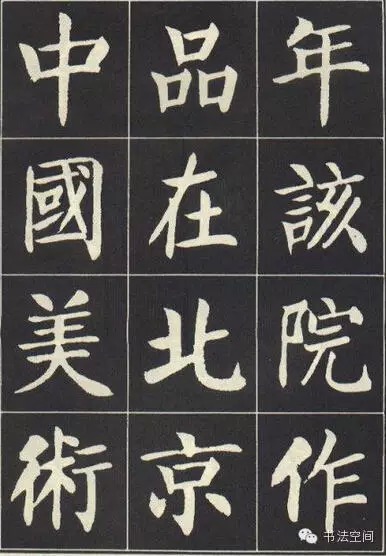 年該院作
品在北京
中國美術
书法空间